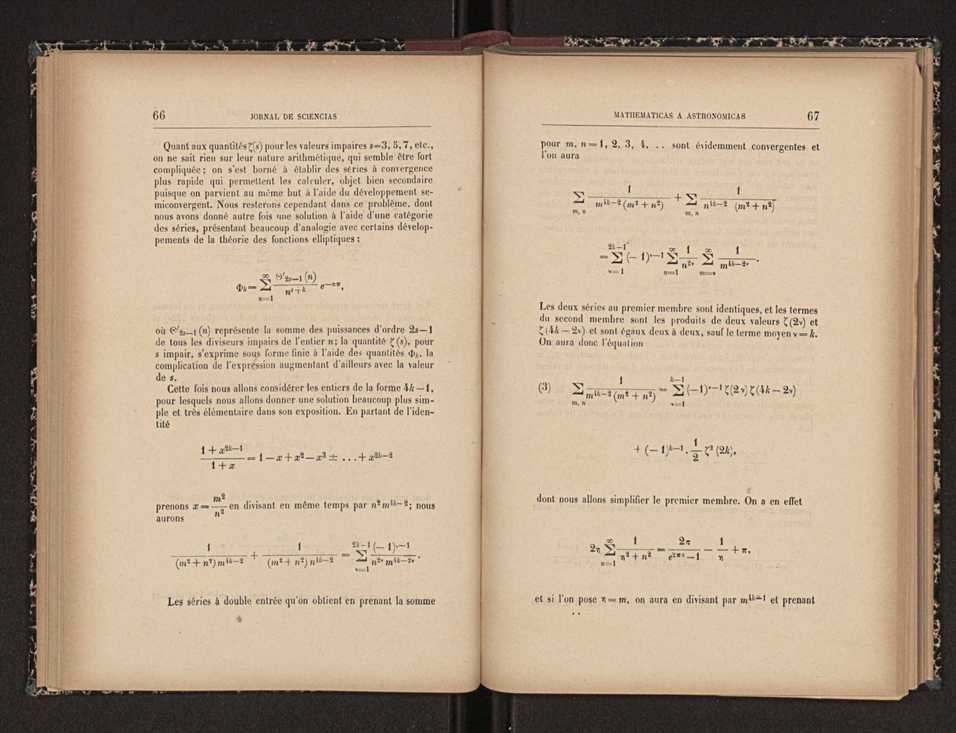 66 JORNAL DE SCIENCIAS
Quant aux quantités ζ(s) pour les valeurs impaires s=3, 5, 7, etc.,
on ne sait rien sur leur nature arithmétique, qui semble être fort
compliquée; on s'est borné à établir des séries à convergence
plus rapide qui permettent les calculer, objet bien secondaire
puisque on parvient au même but à l'aide du développement se-
miconvergent. Nous resterons cependant dans ce problème, dont
nous avons donné autre fois une solution à l'aide d'une catégorie
des séries, présentant beaucoup d'analogie avec certains dévelop-
pements de la théorie des fonctions elliptiques:
Φ_k = Σ_{n=1}^{∞} Θ'_{2s—1}(n) / n^{s+k} e^{—nπ},
où Θ'_{2s—1}(n) représente la somme des puissances d'ordre 2s—1
de tous les diviseurs impairs de l'entier n; la quantité ζ(s), pour
s impair, s'exprime sous forme finie à l'aide des quantités Φ_k, la
complication de l'expréssion augmentant d'ailleurs avec la valeur
de s.
Cette fois nous allons considérer les entiers de la forme 4k—1,
pour lesquels nous allons donner une solution beaucoup plus sim-
ple et très élémentaire dans son exposition. En partant de l'iden-
tité
(1 + x^{2k—1}) / (1 + x) = 1 — x + x² — x³ ± ... + x^{2k—2}
prenons x = m²/n² en divisant en même temps par n² m^{4k—2}; nous
aurons
1 / ((m² + n²) m^{4k—2}) + 1 / ((m² + n²) n^{4k—2}) = Σ_{ν=1}^{2k—1} (— 1)^{ν—1} / (n^{2ν} m^{4k—2ν}).
Les séries à double entrée qu'on obtient en prenant la somme
MATHEMATICAS A ASTRONOMICAS 67
pour m, n = 1, 2, 3, 4, . . sont évidemment convergentes et
l'on aura
Σ_{m, n} 1 / (m^{4k—2} (m² + n²)) + Σ_{m, n} 1 / (n^{4k—2} (m² + n²))
= Σ_{ν=1}^{2k—1} (— 1)^{ν—1} Σ_{n=1}^{∞} 1/n^{2ν} Σ_{m=ν}^{∞} 1/m^{4k—2ν}.
Les deux séries au premier membre sont identiques, et les termes
du second membre sont les produits de deux valeurs ζ(2ν) et
ζ(4k — 2ν) et sont égaux deux à deux, sauf le terme moyen ν = k.
On aura donc l'équation
(3) Σ_{m, n} 1 / (m^{4k—2} (m² + n²)) = Σ_{ν=1}^{k—1} (—1)^{ν—1} ζ(2ν) ζ(4k — 2ν)
+ (— 1)^{k—1} . 1/2 ζ²(2k),
dont nous allons simplifier le premier membre. On a en effet
2η Σ_{n=1}^{∞} 1 / (η² + n²) = 2π / (e^{2πη} — 1) — 1/η + π,
et si l'on pose η = m, on aura en divisant par m^{4k—1} et prenant